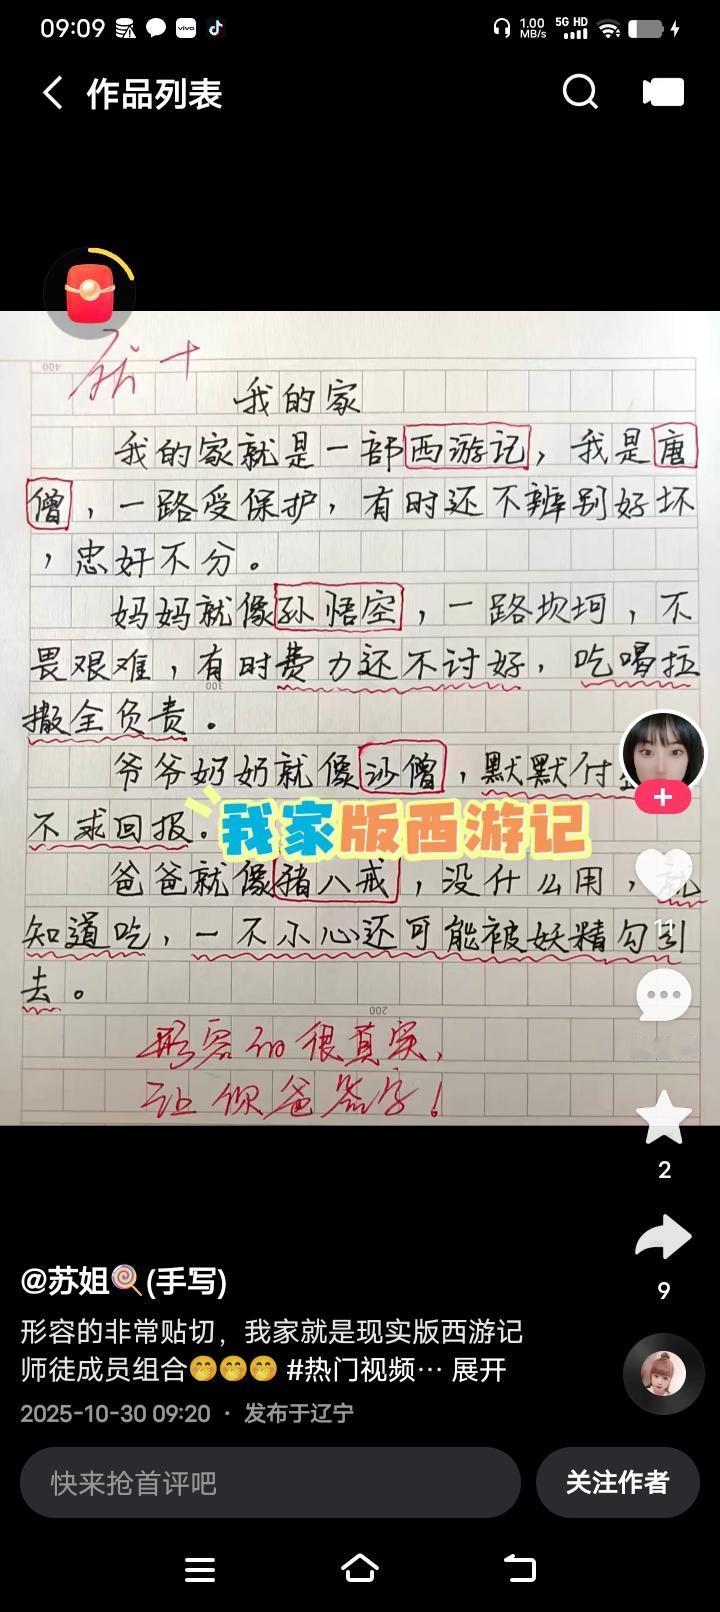 09:09
vivo
1.00 MB/s
5G HD
作品列表
400
优+
我的家
我的家就是一部西游记，我是唐
僧，一路受保护，有时还不辨别好坏
，忠奸不分。
妈妈就像孙悟空，一路坎坷，不
畏艰难，有时费力还不讨好，吃喝拉
300
撒全负责。
爷爷奶奶就像沙僧，默默付
不求回报。
我家版西游记
爸爸就像猪八戒，没什么用，就
11
知道吃，一不小心还可能被妖精勾引
去。
200
形容的很真实，
让你爸签字！
2
9
@苏姐🍭(手写)
形容的非常贴切，我家就是现实版西游记
师徒成员组合🤭🤭🤭 #热门视频… 展开
2025-10-30 09:20 · 发布于辽宁
快来抢首评吧
关注作者